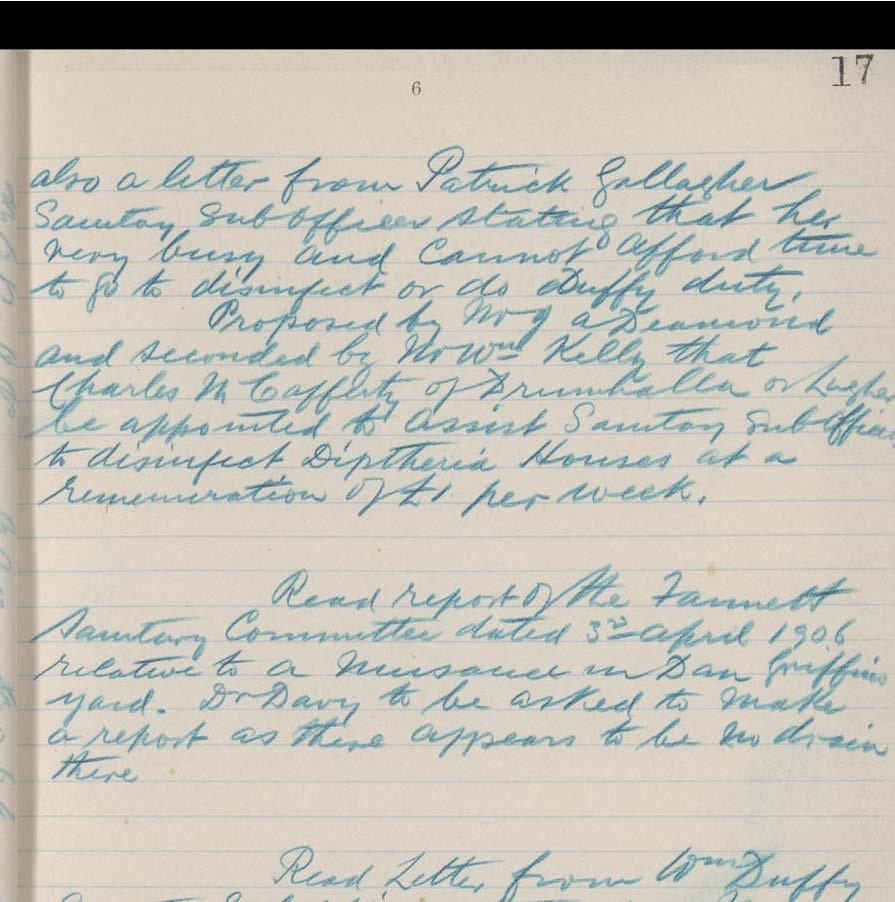 17
6
also a letter from Patrick Gallagher
Sanitary Sub Officer stating that he is
very busy and Cannot afford time
to go to disinfect or do Duffy duty.
Proposed by Mr J a Deamond
and seconded by Mr Wm Kelly that
Charles Mc Cafferty of Drumhalla or
be appointed to assist Sanitary Sub Officer
to disinfect Diptheria Houses at a
remuneration of £1 per week.
Read report of the Fannett
Sanitary Committee dated 3rd April 1906
relative to a Nuisance in Dan Griffins
yard. Dr Davy to be asked to make
a report as there appears to be no drain
there
Read Letter from Wm Duffy